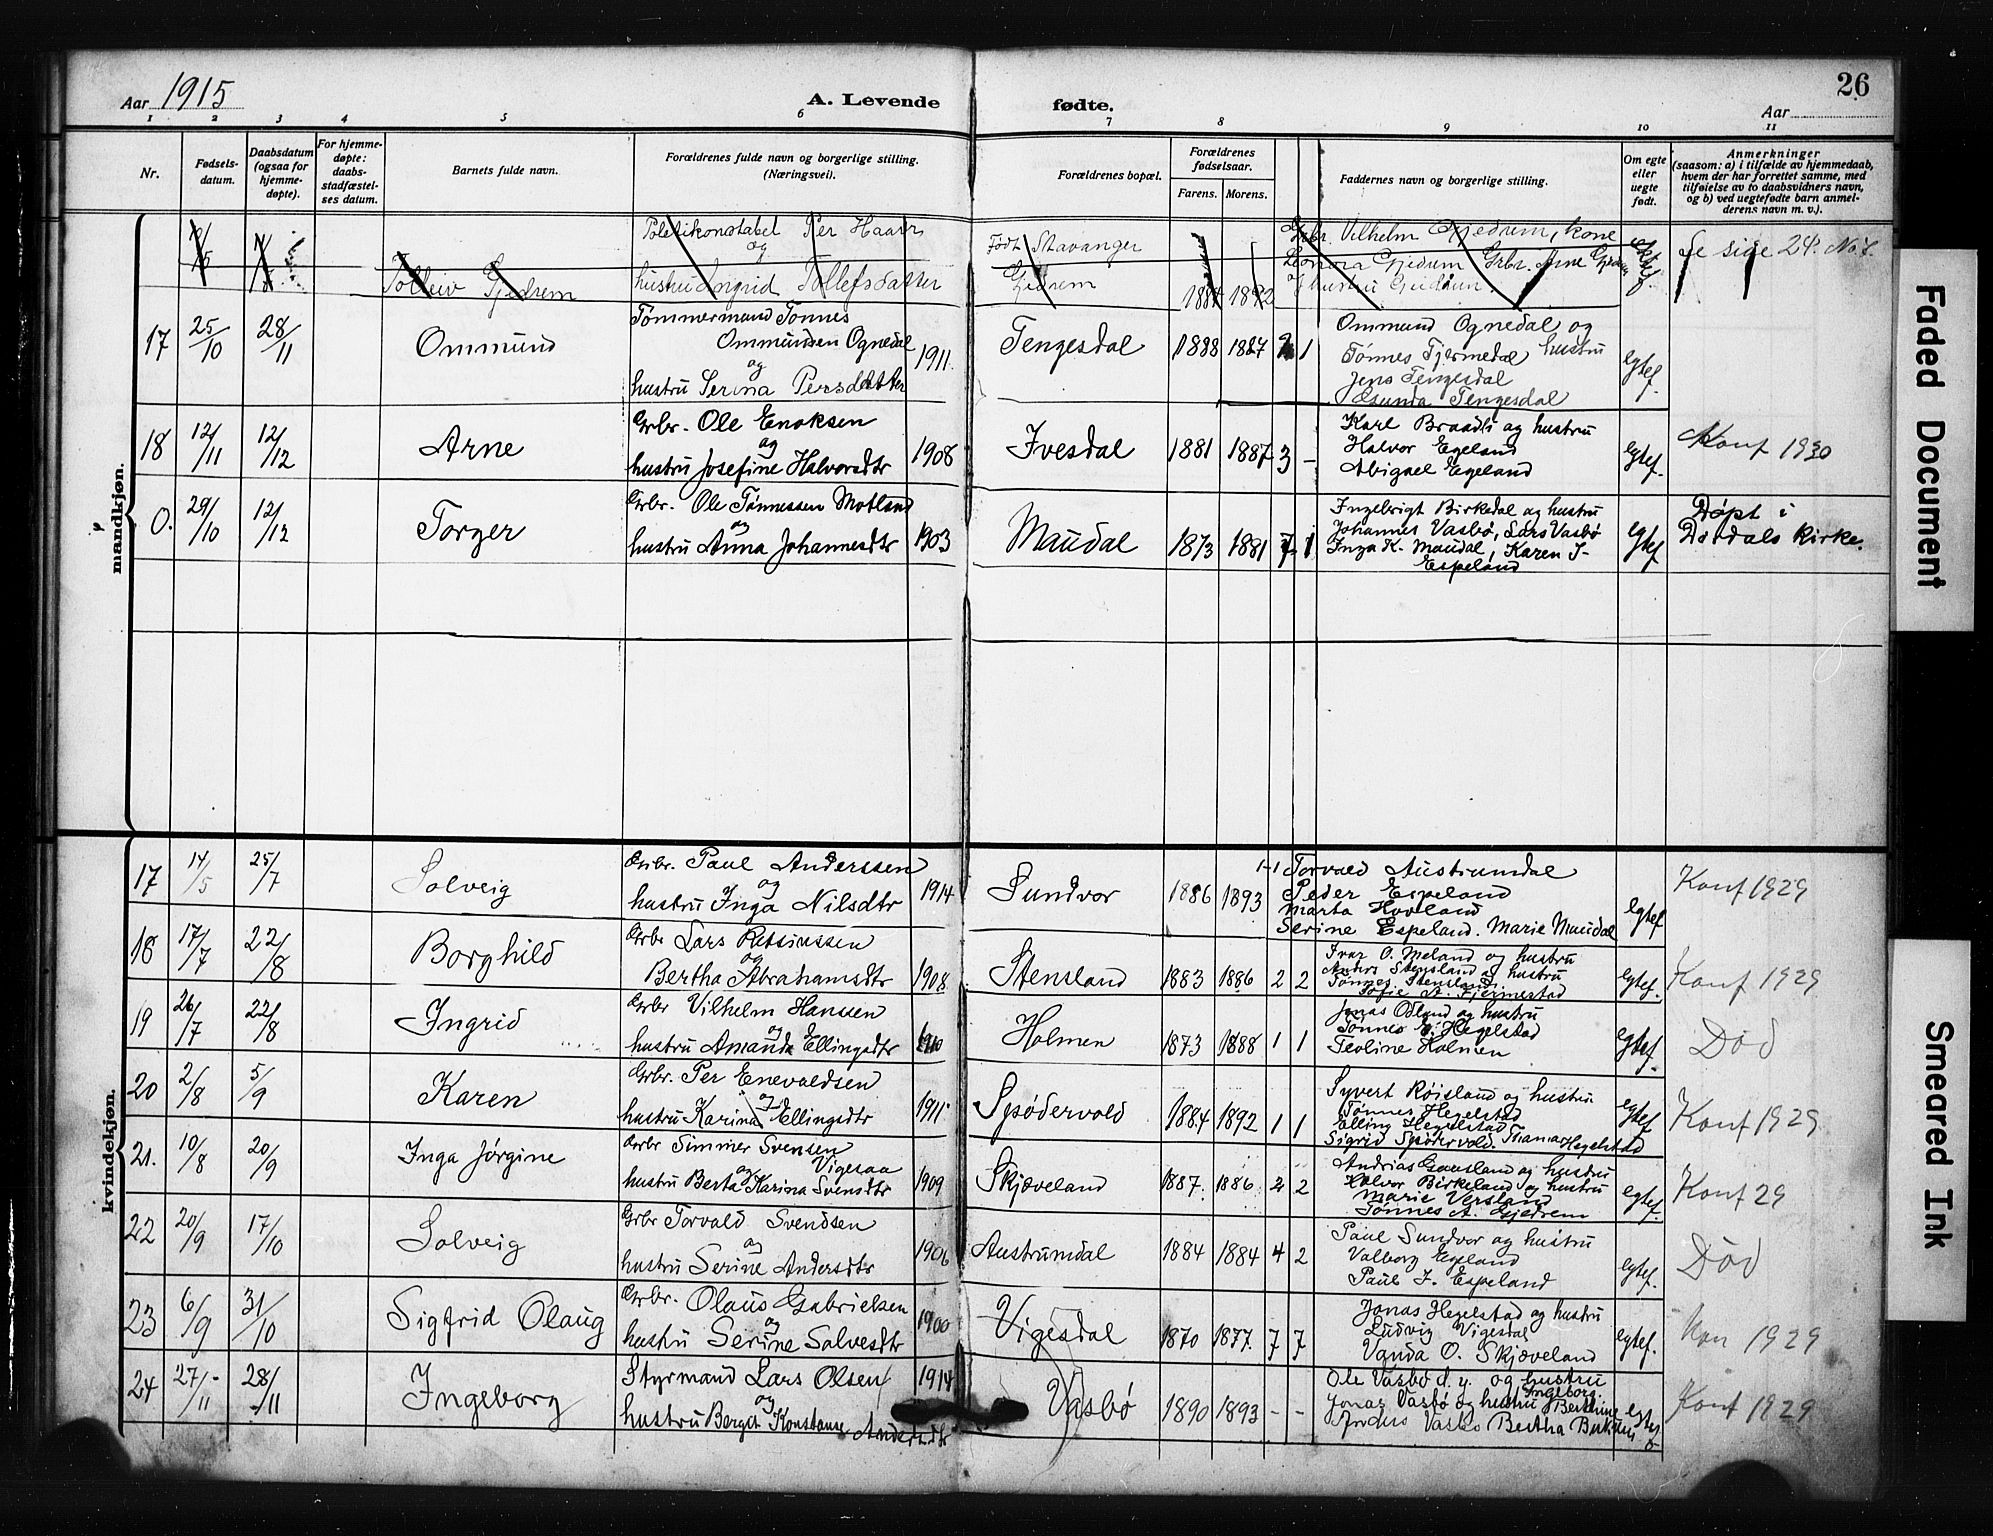 Aar 1915
A. Levende fødte.
Aar
26
1 2 3 4 5 6 7 8 9 10 11
Nr.
Fødsels-
datum.
Daabsdatum
(ogsaa for
hjemme-
døpte).
For hjemme-
døpte:
daabs-
stadfæstel-
ses datum.
Barnets fulde navn.
Forældrenes fulde navn og borgerlige stilling.
(Næringsvei).
Forældrenes bopæl.
Forældrenes
fødselsaar.
Farens. Morens.
Faddernes navn og borgerlige stilling.
Om egte
eller
uegte
født.
Anmerkninger
(saasom: a) i tilfælde av hjemmedaab,
hvem der har forrettet samme, med
tilføielse av to daabsvidners navn,
og b) ved uegtefødte barn anmel-
derens navn m. v.).
mandkjøn.
Tolleiv Gjedrem
Politikonstabel Per Haavr
og
hustru Ingrid Tollefsdatter
Født Stavanger
Gjedrem
1884 1892
Grbr. Vilhelm Gjedrem, kone
Leonora Gjedrem Grbr. Arne Gjedrem
Se side 24. No 8.
17 25/10 28/11
Ommund
Tømmermand Tønnes
Ommundsen Ognedal
og
hustru Serina Persdatter
1911.
Tengesdal
1888 1887 1
Ommund Ognedal og
hustru
Tønnes Tjermedal
Jens Tengesdal
Asunda Tengesdal
egtef.
18 12/11 12/12
Arne
Grbr. Ole Enoksen
og
hustru Josefine Halvorsdtr
1908
Ivesdal
1881 1887 3 -
Karl Braadli og hustru
Halvor Egeland
Abigael Egeland
egtef.
Konf 1930
0. 29/10 12/12
Torger
Grbr. Ole Tønnessen Motland
og
hustru Anna Johannesdtr
1903
Maudal
1873 1881 7 1
Ingebrigt Birkedal og hustru
Johannes Vasbø, Lars Vasbø
Inga K. Maudal, Karen I-
Espeland
egtef
Døpt i
Dirdals Kirke.
kvindekjøn.
17 14/5 25/7
Solveig
Grbr. Paul Anderssen
og
hustru Inga Nilsdtr
1914
Sundvor
1886 1893 1-1
Torvald Austrumdal
Peder Espeland
Marta Hovland
Serine Espeland. Marie Maudal
egtef
Konf 1929
18 17/7 22/8
Borghild
Grbr Lars Rasmussen
og
Bertha Abrahamsdtr
1908.
Stensland
1883 1886 2 2
Ivar O. Meland og hustru
Anders Stensland og hustru
Tønnes Stensland
Sofie A. Fjermestad
egtef.
Konf 1929
19 26/7 22/8
Ingrid
Grbr Vilhelm Hanssen
og
hustru Amanda Ellingsdtr
1910
Holmen
1873 1888 1 1
Jonas Ødland og hustru
Tønnes E. Hegelstad
Teoline Holmen
egtef.
Død
20 2/8 5/9
Karen
Grbr. Per Enevaldsen
og
hustru Karina Ellingsdtr
1911
Spødervold
1884 1892 1 1
Syvert Røisland og hustru
Tønnes Hegelstad
Elling Hegelstad
Sigrid Spødervold. Tiamar Hegelstad
egtef
Konf 1929
21. 10/8 20/9
Inga Jørgine
Grbr Simmer Svensen
Vigesaa
og
hustru Berta Karina Svensdtr
1909
Skjæveland
1887. 1886. 2 2
Andrias Gausland og hustru
Halvor Birkeland og hustru
Marie Versland
Tønnes A. Gjedrem
egtef.
Konf 29
22 20/9 17/10
Solveig
Grbr Torvald Svendsen
og
hustru Serine Andersdtr
1906
Austrumdal
1884 1884 4 2
Paul Sundvor og hustru
Valborg Egeland
Paul J. Espeland
egtef.
Død
23 6/9 31/10
Sigfrid Olaug
Grbr. Olaus Gabrielsen
og
hustru Serine Salvesdtr
1900
Vigesdal
1870 1877. 7 7
Jonas Hegelstad og hustru
Ludvig Vigesdal
Vanda O. Skjæveland
egtef.
Kon 1929
24 27/11 28/11
Ingeborg
Styrmand Lars Olsen
og
hustru Berget Konstanse Andersdtr
1914
Vasbø
1890 1893 - -
Ole Vasbø d. y. og hustru
Ingeborg.
Jonas Vasbø og hustru Berthine
Anders Vasbø Bertha
egtef
Konf 1929
Faded Document
Smeared Ink